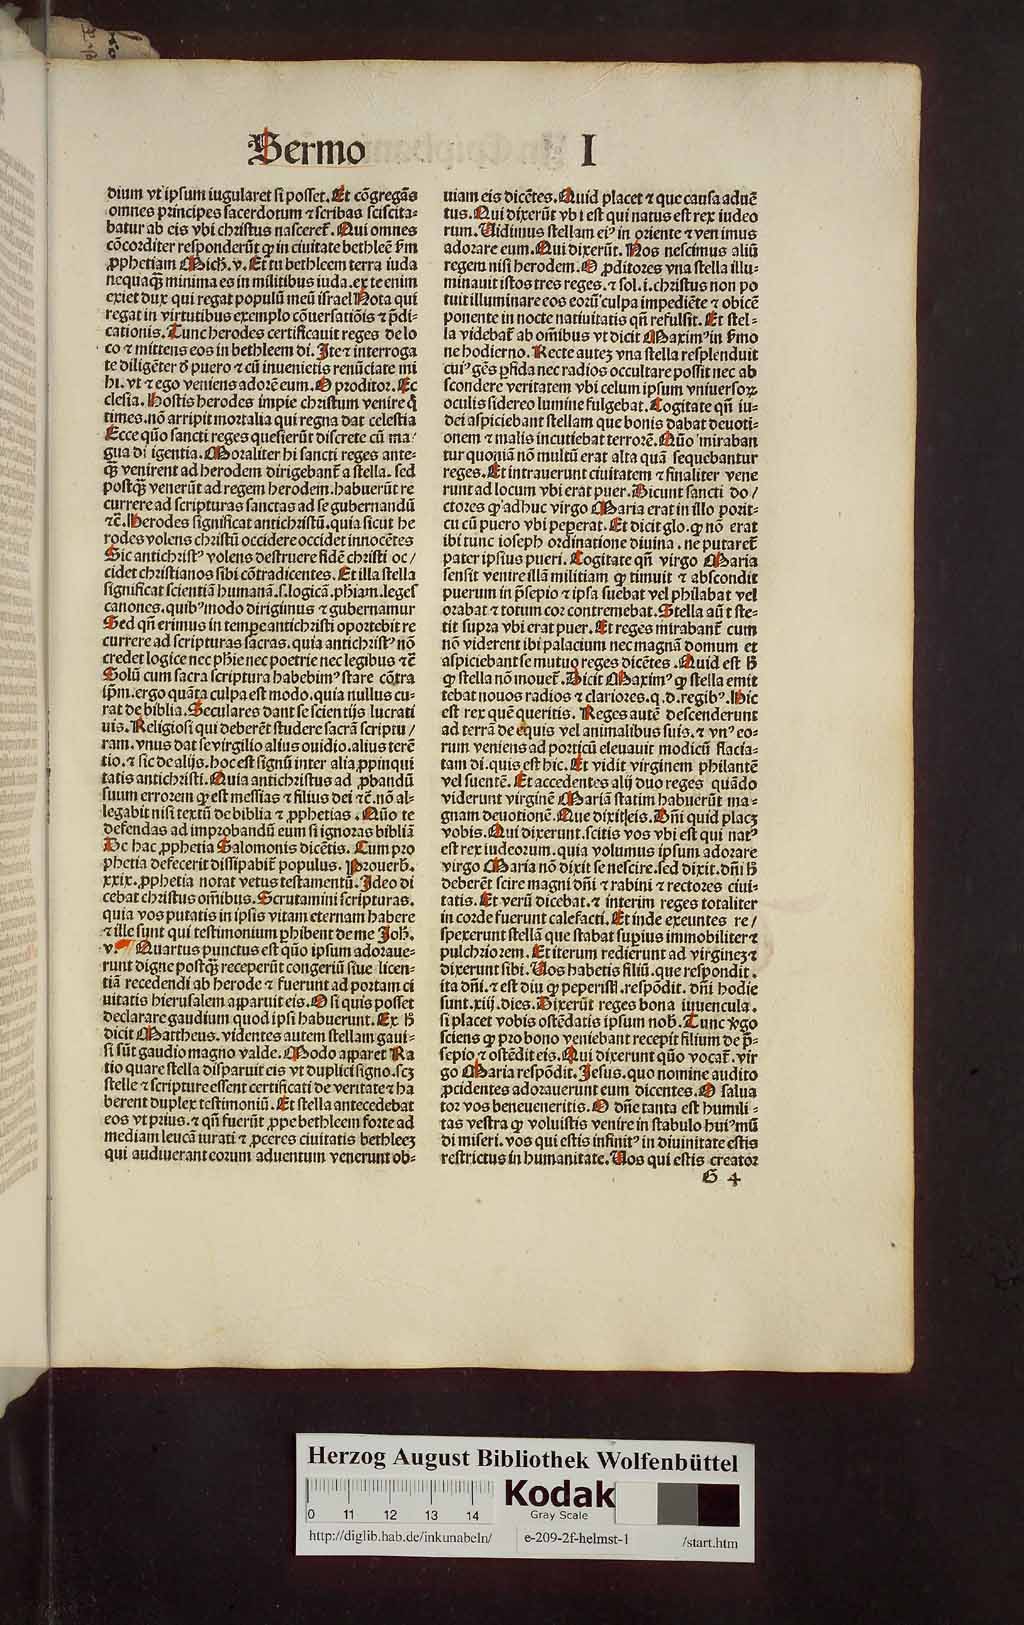 Sermo I
dium vt ipsum iugularet si posset. Et cõgregãs
omnes principes sacerdotum ⁊ scribas sciscita⸗
batur ab eis vbi christus nasceret᷑. Qui omnes
cõcorditer responderũt ꝙ in ciuitate bethleẽ ẜm
ꝓphetiam Mich. v. Et tu bethleem terra iuda
nequaq̃ minima es in militibus iuda. ex te enim
exiet dux qui regat populũ meũ israel Nota qui
regat in virtutibus exemplo cõuersatiõis ⁊ p̃di⸗
cationis. Tunc herodes certificauit reges de lo
co ⁊ mittens eos in bethleem di. Ite ⁊ interroga
te diligẽter d̕ puero ⁊ cũ inuenietis renũciate mi
hi. vt ⁊ ego veniens adorẽ eum. O proditor. Ec
clesia. Hostis herodes impie christum venire qd̕
times. nõ arripit mortalia qui regna dat celestia
Ecce quõ sancti reges quesierũt discrete cũ ma⸗
gua di igentia. Moraliter hi sancti reges ante⸗
q̃ venirent ad herodem dirigebant᷑ a stella. sed
postq̃ venerũt ad regem herodem. habuerũt re
currere ad scripturas sanctas ad se gubernandũ
⁊c̃. Herodes significat antichristũ. quia sicut he
rodes volens christũ occidere occidet innocẽtes
Sic antichristꝰ volens destruere fidẽ christi oc/
cidet christianos sibi cõtradicentes. Et illa stella
significat scientiã humanã. s. logicã. phiam. leges
canones. quibꝰ modo dirigimus ⁊ gubernamur
Sed qñ erimus in tempe antichristi oportebit re
currere ad scripturas sacras. quia antichristꝰ nõ
credet logice nec phie nec poetrie nec legibus ⁊c̃
Solũ cum sacra scriptura habebimꝰ stare cõtra
ip̃m. ergo quãta culpa est modo. quia nullus cu⸗
rat de biblia. Seculares dant se scientijs lucrati
uis. Religiosi qui deberẽt studere sacrã scriptu/
ram. vnus dat se virgilio alius ouidio. alius terẽ
tio. ⁊ sic de alijs. hoc est signũ inter alia ꝓpinqui
tatis antichristi. Quia antichristus ad ꝓbandũ
suum errorem ꝙ est messias ⁊ filius dei ⁊c̃. nõ al⸗
legabit nisi textũ de biblia ⁊ ꝓphetias. Quõ te
defendas ad improbandũ eum si ignoras bibliã
De hac ꝓphetia Salomonis dicẽtis. Cum pro
phetia defecerit dissipabit᷑ populus. Prouerb.
xxix. ꝓphetia notat vetus testamentũ. Ideo di
cebat christus om̃ibus. Scrutamini scripturas.
quia vos putatis in ipsis vitam eternam habere
⁊ ille sunt qui testimonium ꝑhibent de me Joh.
v. Quartus punctus est quõ ipsum adoraue⸗
runt digne postq̃ receperũt congeriũ siue licen⸗
tiã recedendi ab herode ⁊ fuerunt ad portam ci
uitatis hierusalem apparuit eis. O si quis posset
declarare gaudium quod ipsi habuerunt. Ex h̕
dicit Mattheus. videntes autem stellam gaui⸗
si sũt gaudio magno valde. Modo apparet Ra
tio quare stella disparuit eis vt duplici signo. scꝫ
stelle ⁊ scripture essent certificati de veritate ⁊ ha
berent duplex testimoniũ. Et stella antecedebat
eos vt prius. ⁊ qñ fuerũt ꝓpe bethleem forte ad
mediam leucã iurati ⁊ ꝓceres ciuitatis bethleeꝫ
qui audiuerant eorum aduentum venerunt ob⸗
uiam eis dicẽtes. Quid placet ⁊ que causa aduẽ
tus. Qui dixerũt vb i est qui natus est rex iudeo
rum. Uidimus stellam eiꝰ in oriente ⁊ ven imus
adorare eum. Qui dixerũt. Nos nescimus aliũ
regem nisi herodem. O ꝓditores vna stella illu⸗
minauit istos tres reges. ⁊ sol. i. christus non po
tuit illuminare eos eorũ culpa impediẽte ⁊ obicẽ
ponente in nocte natiuitatis qñ refulsit. Et stel⸗
la videbat᷑ ab om̃ibus vt dicit Maximꝰ in ẜmo
ne hodierno. Recte auteꝫ vna stella resplenduit
cuiꝰ gẽs ꝑfida nec radios occultare possit nec ab
scondere veritatem vbi celum ipsum vniuersoꝝ
oculis sidereo lumine fulgebat. Cogitate qñ iu⸗
dei aspiciebant stellam que bonis dabat deuoti⸗
onem ⁊ malis incutiebat terrorẽ. Quõ miraban
tur quoniã nõ multũ erat alta quã sequebantur
reges. Et intrauerunt ciuitatem ⁊ finaliter vene
runt ad locum vbi erat puer. Dicunt sancti do/
ctores ꝙ adhuc virgo Maria erat in illo porit⸗
cu cũ puero vbi peperat. Et dicit glo. ꝙ nõ erat
ibi tunc ioseph ordinatione diuina. ne putaret᷑
pater ipsius pueri. Cogitate qñ virgo Maria
sensit venire illã militiam ꝙ timuit ⁊ abscondit
puerum in p̃sepio ⁊ ipsa suebat vel philabat vel
orabat ⁊ totum cor contremebat. Stella aũt ste⸗
tit supra vbi erat puer. Et reges mirabant᷑ cum
nõ viderent ibi palacium nec magnã domum et
aspiciebant se mutuo reges dicẽtes. Quid est h̕
ꝙ stella nõ mouet᷑. Dicit Maximꝰ ꝙ stella emit
tebat nouos radios ⁊ clariores. q. d. regibꝰ. Hic
est rex quẽ queritis. Reges autẽ descenderunt
ad terrã de equis vel animalibus suis. ⁊ vnꝰ eo⸗
rum veniens ad porticũ eleuauit modicũ flacia⸗
tam di. quis est hic. Et vidit virginem philantẽ
vel suentẽ. Et accedentes alij duo reges quãdo
viderunt virginẽ Mariã statim habuerũt ma⸗
gnam deuotionẽ. Que dixit eis. Dñi quid placꝫ
vobis. Qui dixerunt. scitis vos vbi est qui natꝰ
est rex iudeorum. quia volumus ipsum adorare
virgo Maria nõ dixit se nescire. sed dixit. dñi h̕
deberẽt scire magni dñi ⁊ rabini ⁊ rectores ciui⸗
tatis. Et verũ dicebat. ⁊ interim reges totaliter
in corde fuerunt calefacti. Et inde exeuntes re/
spexerunt stellã que stabat supius immobiliter ⁊
pulchriorem. Et iterum redierunt ad virgineꝫ ⁊
dixerunt sibi. Uos habetis filiũ. que respondit.
ita dñi. ⁊ est diu ꝙ peperisti. respõdit. dñi hodie
sunt. xiij. dies. Dixerũt reges bona iuuencula.
si placet vobis ostẽdatis ipsum nob. Tunc v̕go
sciens ꝙ pro bono veniebant recepit filium de p̃⸗
sepio ⁊ ostẽdit eis. Qui dixerunt quõ vocat᷑. vir
go Maria respõdit. Jesus. quo nomine audito
ꝓcidentes adorauerunt eum dicentes. O salua
tor vos beneueneritis. O dñe tanta est humili⸗
tas vestra ꝙ voluistis venire in stabulo huiꝰ mũ
di miseri. vos qui estis infinitꝰ in diuinitate estis
restrictus in humanitate. Uos qui estis creator
G 4
Herzog August Bibliothek Wolfenbüttel
0 11 12 13 14
Kodak
Gray Scale
http://diglib.hab.de/inkunabeln/ e-209-2f-helmst-1 /start.htm